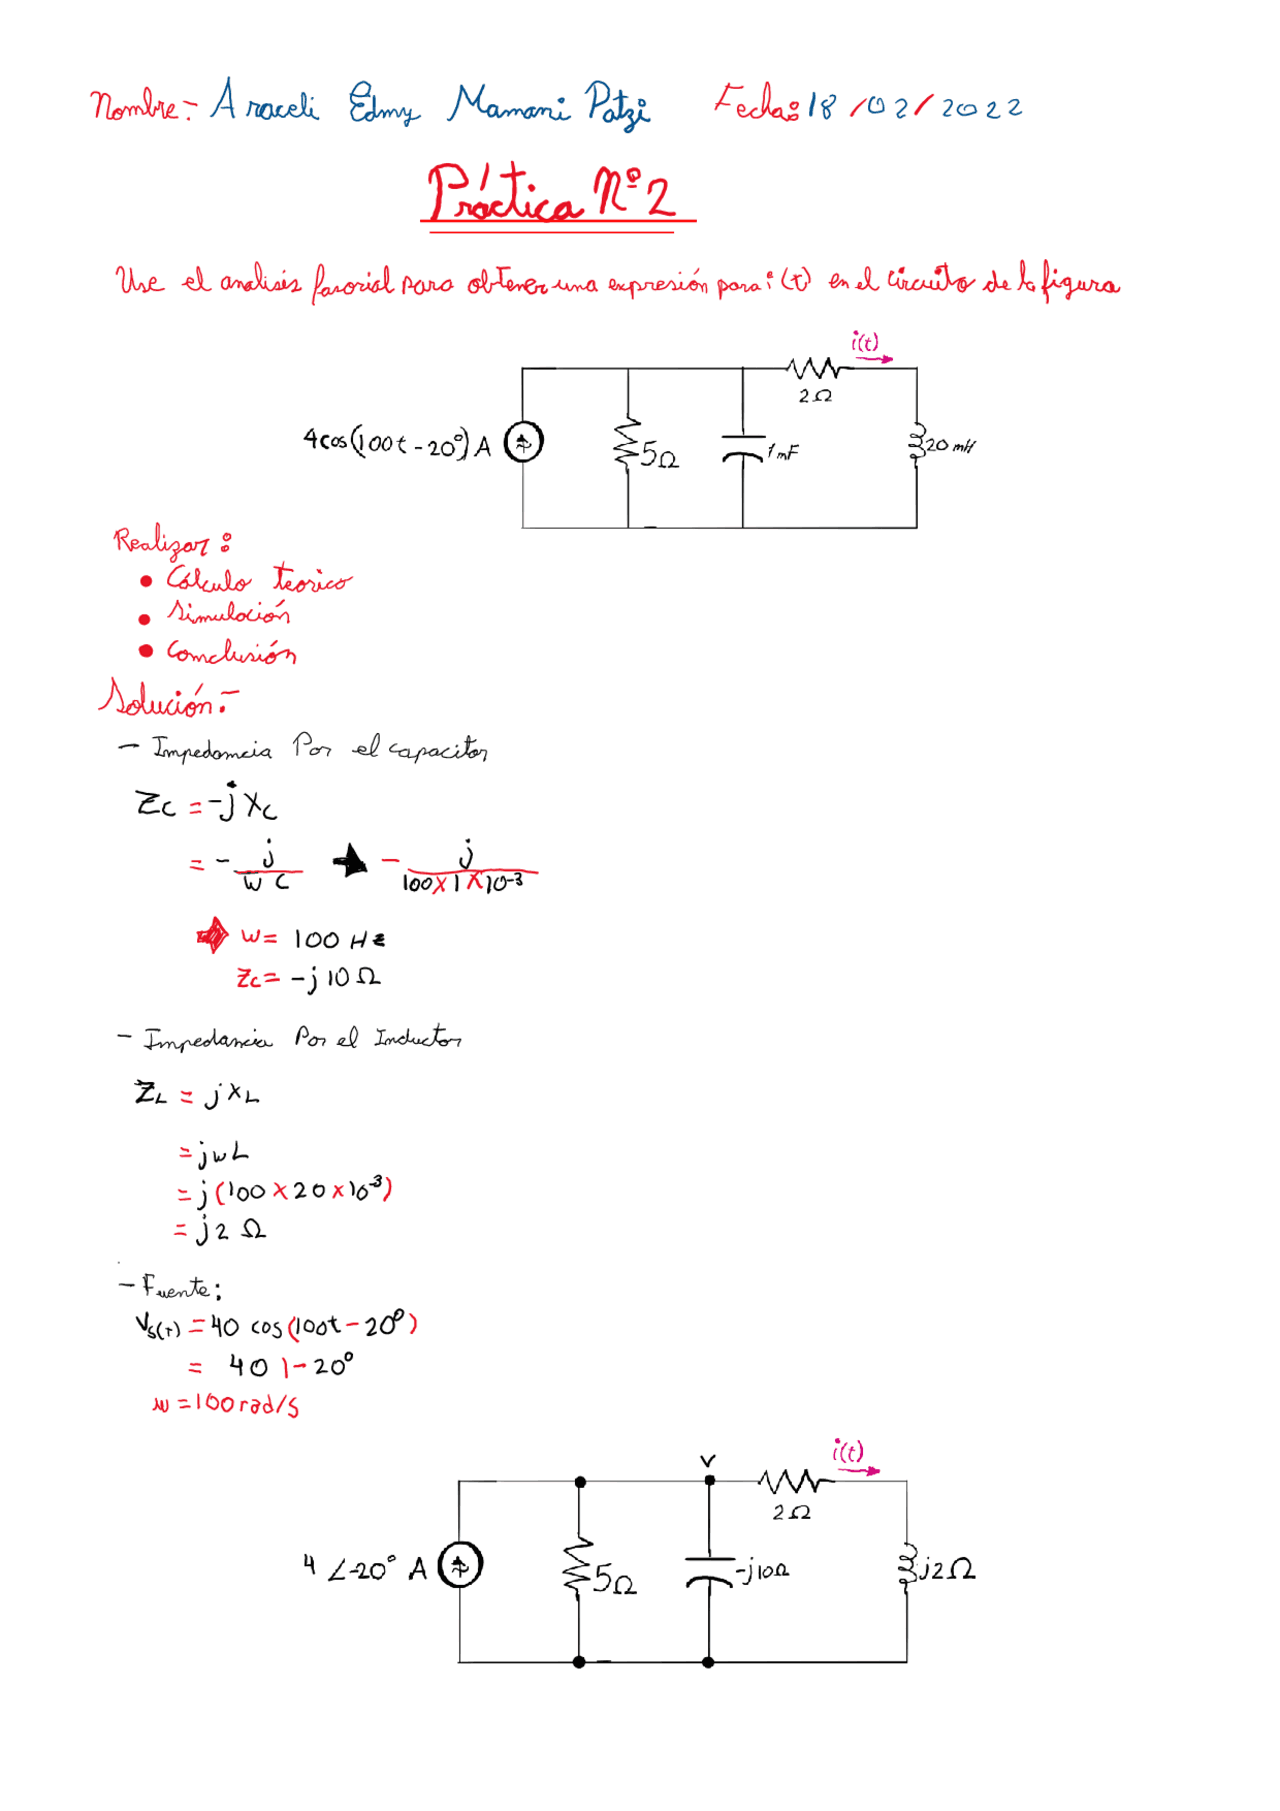 Nombre:- Araceli Edmy Mamani Patzi Fecha: 18/02/2022
Práctica Nº2
Use el analisis fasorial para obtener una expresión para i(t) en el circuito de la figura
i(t)
2Ω
4cos(100t-20°) A
5Ω
1mF
20 mH
Realizar:
• Cálculo teorico
• Simulación
• Conclusión
Solución:-
- Impedancia Por el capacitor
Zc = -j Xc
= - j / W C → - j / 100 X 1 X 10⁻³
→ w = 100 Hz
Zc = -j 10 Ω
- Impedancia Por el Inductor
ZL = j XL
= j w L
= j (100 X 20 X 10⁻³)
= j 2 Ω
- Fuente:
Vs(t) = 40 cos (100t - 20°)
= 40 |-20°
w = 100 rad/s
V
i(t)
2Ω
4 ∠-20° A
5Ω
-j10Ω
j2Ω